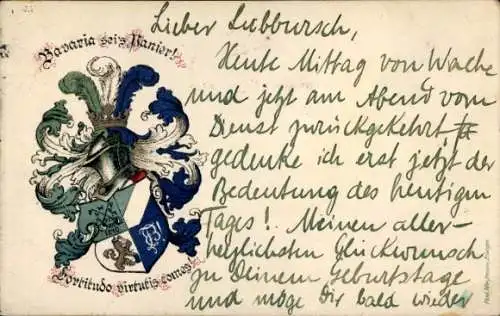 Bavaria sei's Panier!
Fortitudo virtutis comes!
Lieber Leibbursch,
Heute Mittag von Wache
und jetzt am Abend vom
Dienst zurückgekehrt
gedenke ich erst jetzt der
Bedeutung des heutigen
Tages! Meinen aller-
herzlichsten Glückwunsch
zu Deinem Geburtstage
und möge Dir bald wieder